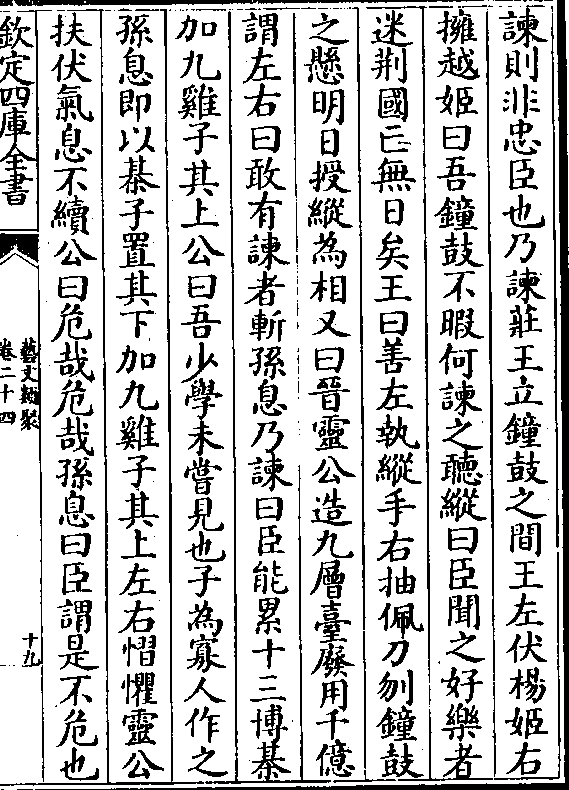 諫則非忠臣也乃諫莊王立鐘鼓之間王左伏楊姬右
擁越姬曰吾鐘鼓不暇何諫之聽縱曰臣聞之好樂者
迷荆國亡無日矣王曰善左執縱手右抽佩刀刎鐘鼓
之懸明日授縱為相又曰晉靈公造九層臺廢用千億
謂左右曰敢有諫者斬孫息乃諫曰臣能累十三博棊
加九雞子其上公曰吾少學未嘗見也子為寡人作之
孫息即以棊子置其下加九雞子其上左右慴懼靈公
扶伏氣息不續公曰危哉危哉孫息曰臣謂是不危也
欽定四庫全書
藝文類聚
卷二十四
十九